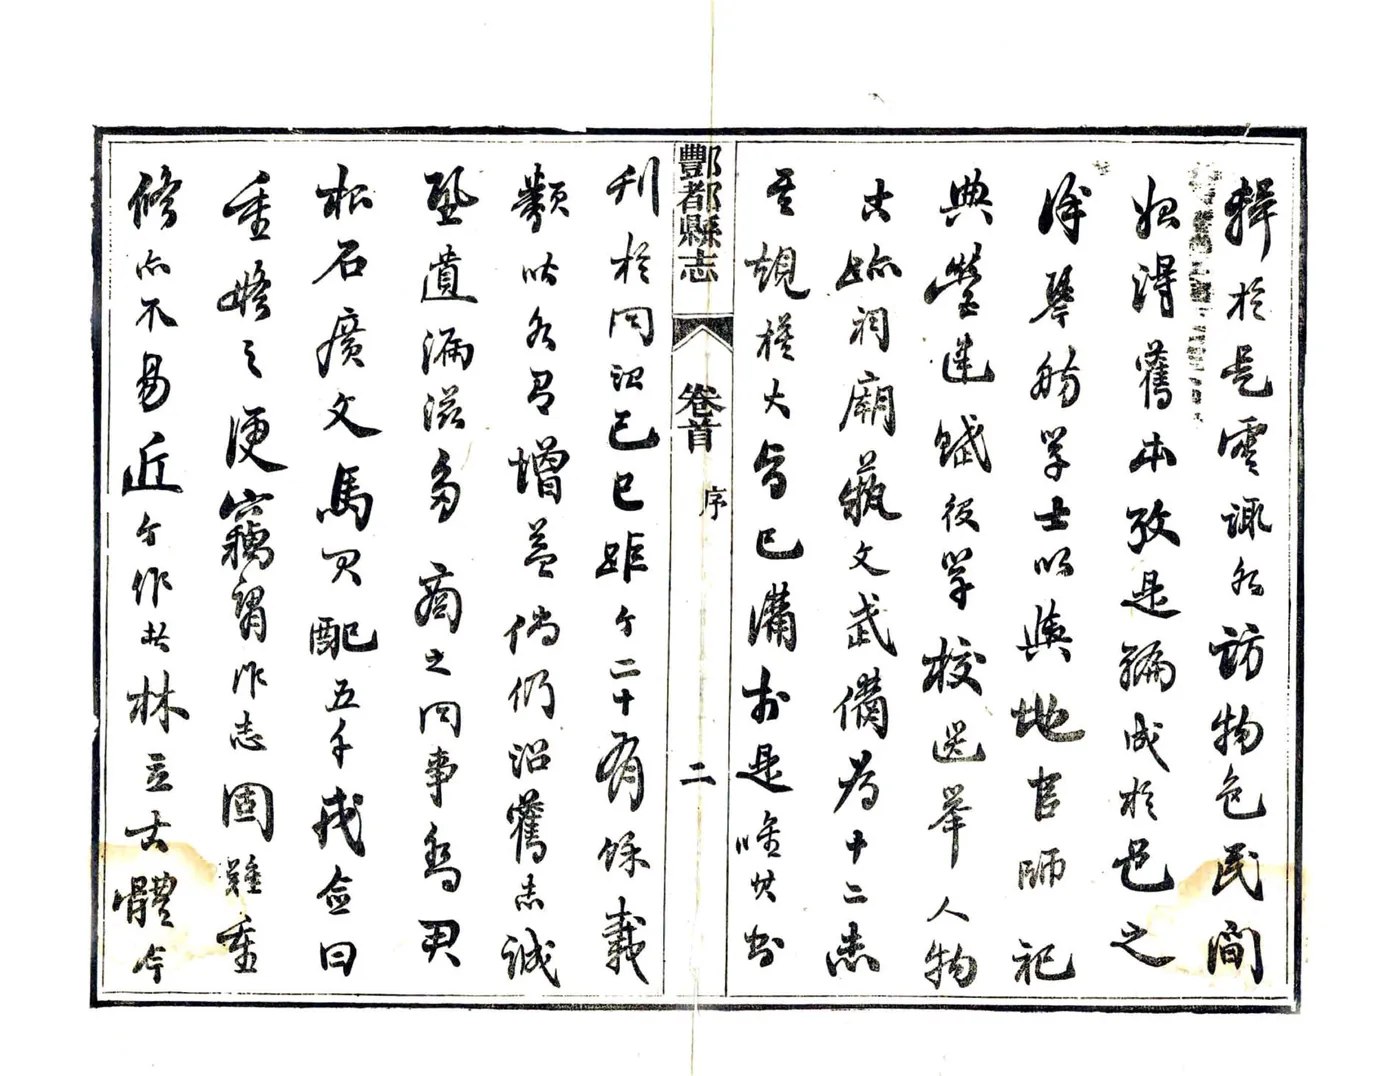 輯於是虛諏分訪物色民間
始得舊本攷是編成於邑之
徐琴舫學士以輿地官師祀
典營建賦役學校選舉人物
古蹟祠廟藝文武備為十二志
其規模大局已備於是唯其書
酆都縣志
卷首
序
二
刊於同治己巳距今二十有餘載
類皆多有增益倘仍沿舊志誠
恐遺漏滋多商之同事喬君
松石廣文馬貝配五千戎僉曰
重修之便竊謂作志固難重
修亦不易近今作者林立古體今